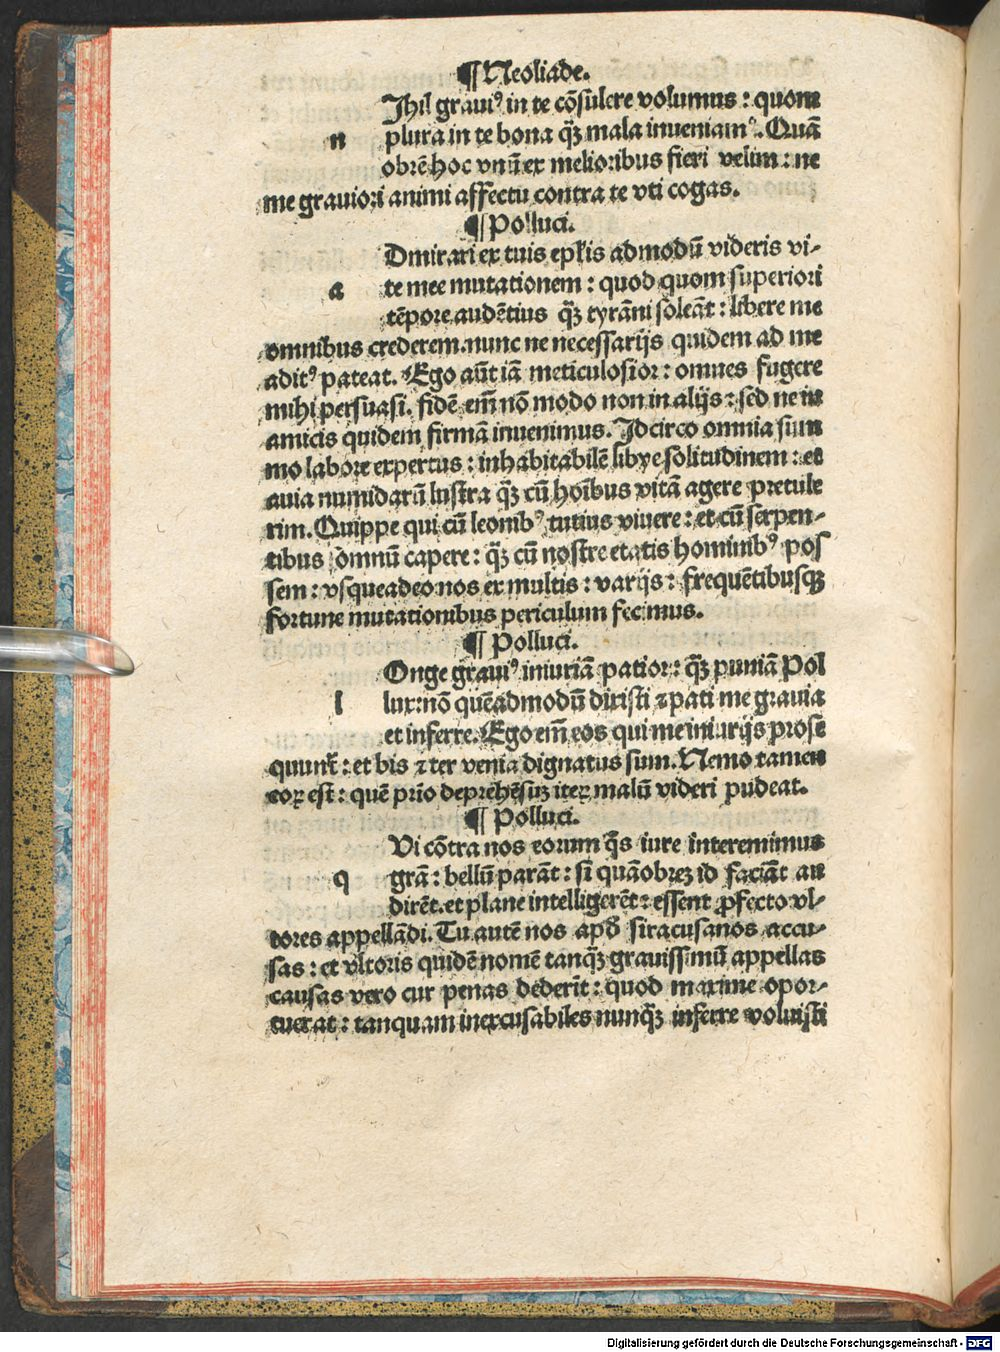 ¶ Neoliade.
Jhil graui⁹ in te cōsulere volumus : quom
n plura in te bona q̄ȝ mala inueniam⁹. Quā
obrē hoc vnū ex melioribus fieri velim : ne
me grauiori animi affectu contra te vti cogas.
¶ Polluci.
Dmirari ex tuis ep̄lis admodū videris vi-
a te mee mutationem : quod quom superiori
tēpore audētius q̄ȝ tyrāni soleāt : libere me
omnibus crederem.nunc ne necessarijs quidem ad me
adit⁹ pateat. Ego aūt iā meticulosior : omnes fugere
mihi persuasi. fidē em̄ nō modo non in alijs : sed ne in
amicis quidem firmā inuenimus. Jdcirco omnia sum
mo labore expertus : inhabitabilē libye solitudinem : et
auia numidarū lustra q̄ȝ cū hoībus vitā agere pretule
rim. Quippe qui cū leonib⁹ tutius viuere : et cū serpen-
tibus omnū capere : q̄ȝ cū nostre etatis hominib⁹ pos
sem : vsqueadeo nos ex multis : varijs : frequētibusqȝ
fortune mutationibus periculum fecimus.
¶ Polluci.
Onge graui⁹ iniuriā patior : q̄ȝ puniā Pol
l lux:nō quēadmodū dixisti ⁊ pati me grauia
et inferre. Ego em̄ eos qui me iniurijs prose
quunt᷑ : et bis ⁊ ter venia dignatus sum. Nemo tamen
eoꝝ est : quē prīo deprehēsuȝ iteꝝ malū videri pudeat.
¶ Polluci.
Vi cōtra nos eorum q̄s iure interemimus
q grā : bellū parāt : si quāobreȝ id faciāt au
dirēt.et plane intelligerēt : essent ꝓfecto vl-
tores appellādi. Tu autē nos apđ siracusanos accu-
sas : et vltoris quidē nomē tanq̄ȝ grauissimū appellas
causas vero cur penas dederīt : quod maxime opor-
tuerat : tanquam inexcusabiles nunq̄ȝ inferre voluisti
Digitalisierung gefördert durch die Deutsche Forschungsgemeinschaft - DFG